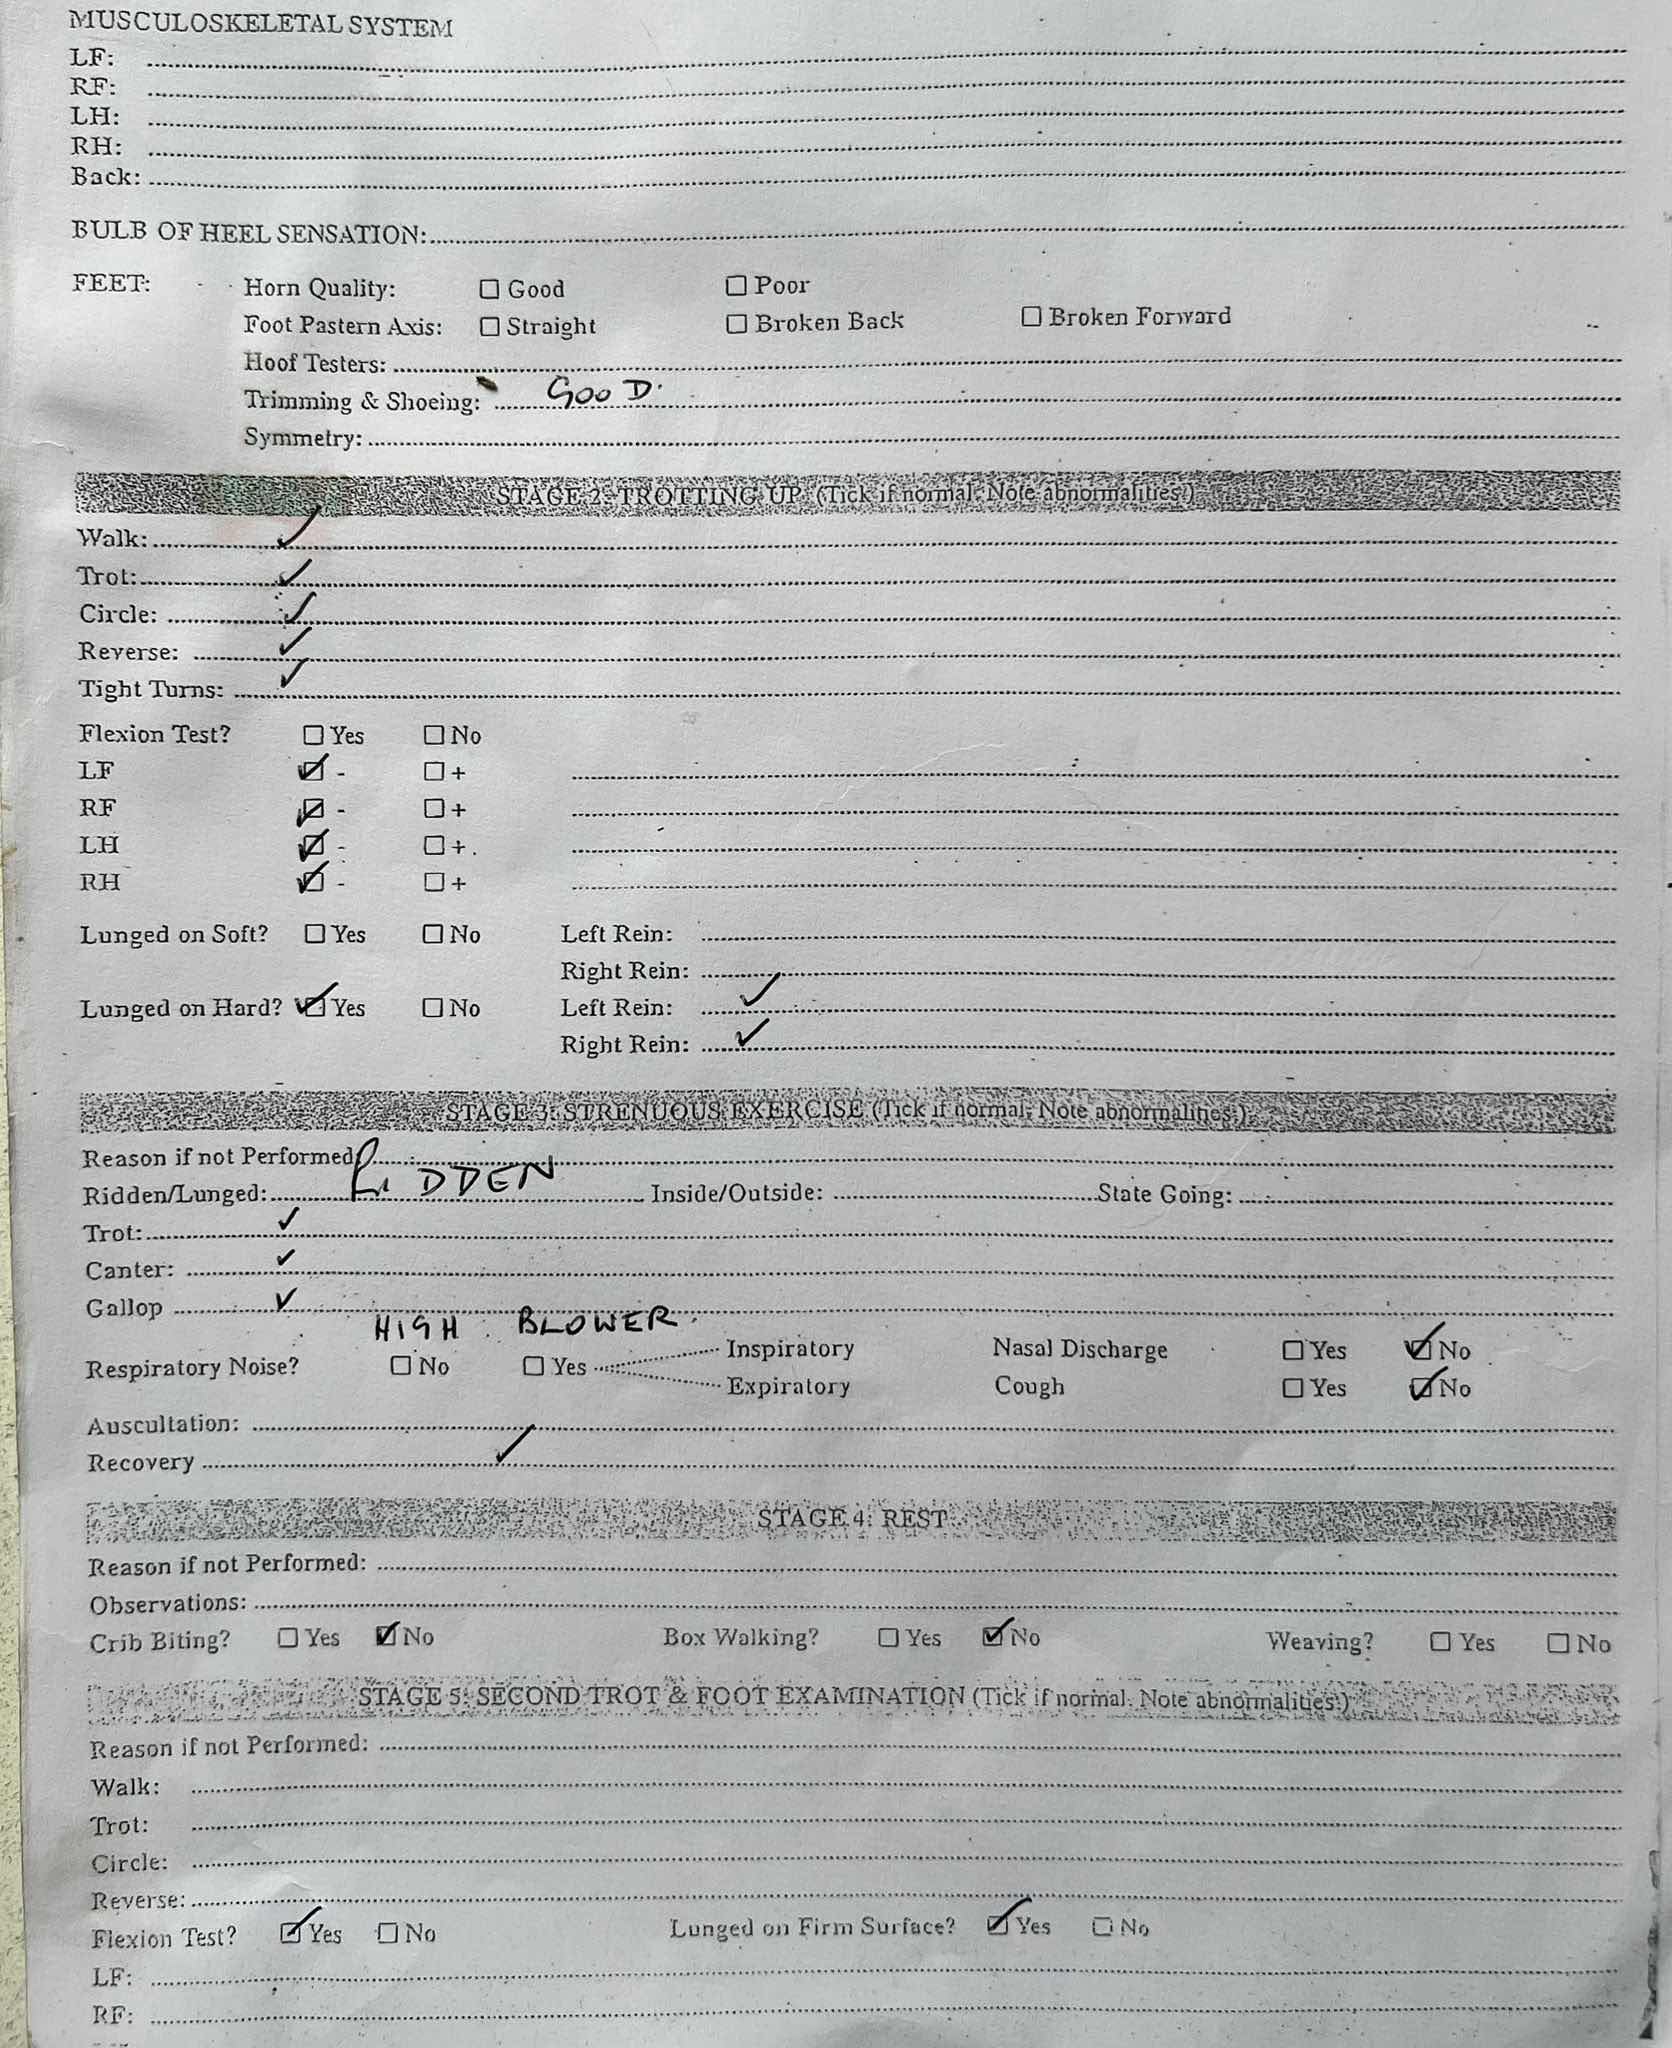 MUSCULOSKELETAL SYSTEM
LF:
RF:
LH:
RH:
Back:
BULB OF HEEL SENSATION:
FEET: Horn Quality: ☐ Good ☐ Poor
Foot Pastern Axis: ☐ Straight ☐ Broken Back ☐ Broken Forward
Hoof Testers:
Trimming & Shoeing: GOOD.
Symmetry:
STAGE 2: TROTTING UP (Tick if normal. Note abnormalities.)
Walk: ✓
Trot: ✓
Circle: ✓
Reverse: ✓
Tight Turns: ✓
Flexion Test? ☐ Yes ☐ No
LF ☑ - ☐ +
RF ☑ - ☐ +
LH ☑ - ☐ +
RH ☑ - ☐ +
Lunged on Soft? ☐ Yes ☐ No Left Rein:
Right Rein:
Lunged on Hard? ☑ Yes ☐ No Left Rein: ✓
Right Rein: ✓
STAGE 3: STRENUOUS EXERCISE (Tick if normal. Note abnormalities.)
Reason if not Performed:
Ridden/Lunged: RIDDEN Inside/Outside: State Going:
Trot: ✓
Canter: ✓
Gallop ✓
HIGH BLOWER.
Respiratory Noise? ☐ No ☐ Yes Inspiratory Nasal Discharge ☐ Yes ☑ No
Expiratory Cough ☐ Yes ☑ No
Auscultation:
Recovery ✓
STAGE 4: REST
Reason if not Performed:
Observations:
Crib Biting? ☐ Yes ☑ No Box Walking? ☐ Yes ☑ No Weaving? ☐ Yes ☐ No
STAGE 5: SECOND TROT & FOOT EXAMINATION (Tick if normal. Note abnormalities.)
Reason if not Performed:
Walk:
Trot:
Circle:
Reverse:
Flexion Test? ☑ Yes ☐ No Lunged on Firm Surface? ☑ Yes ☐ No
LF:
RF: